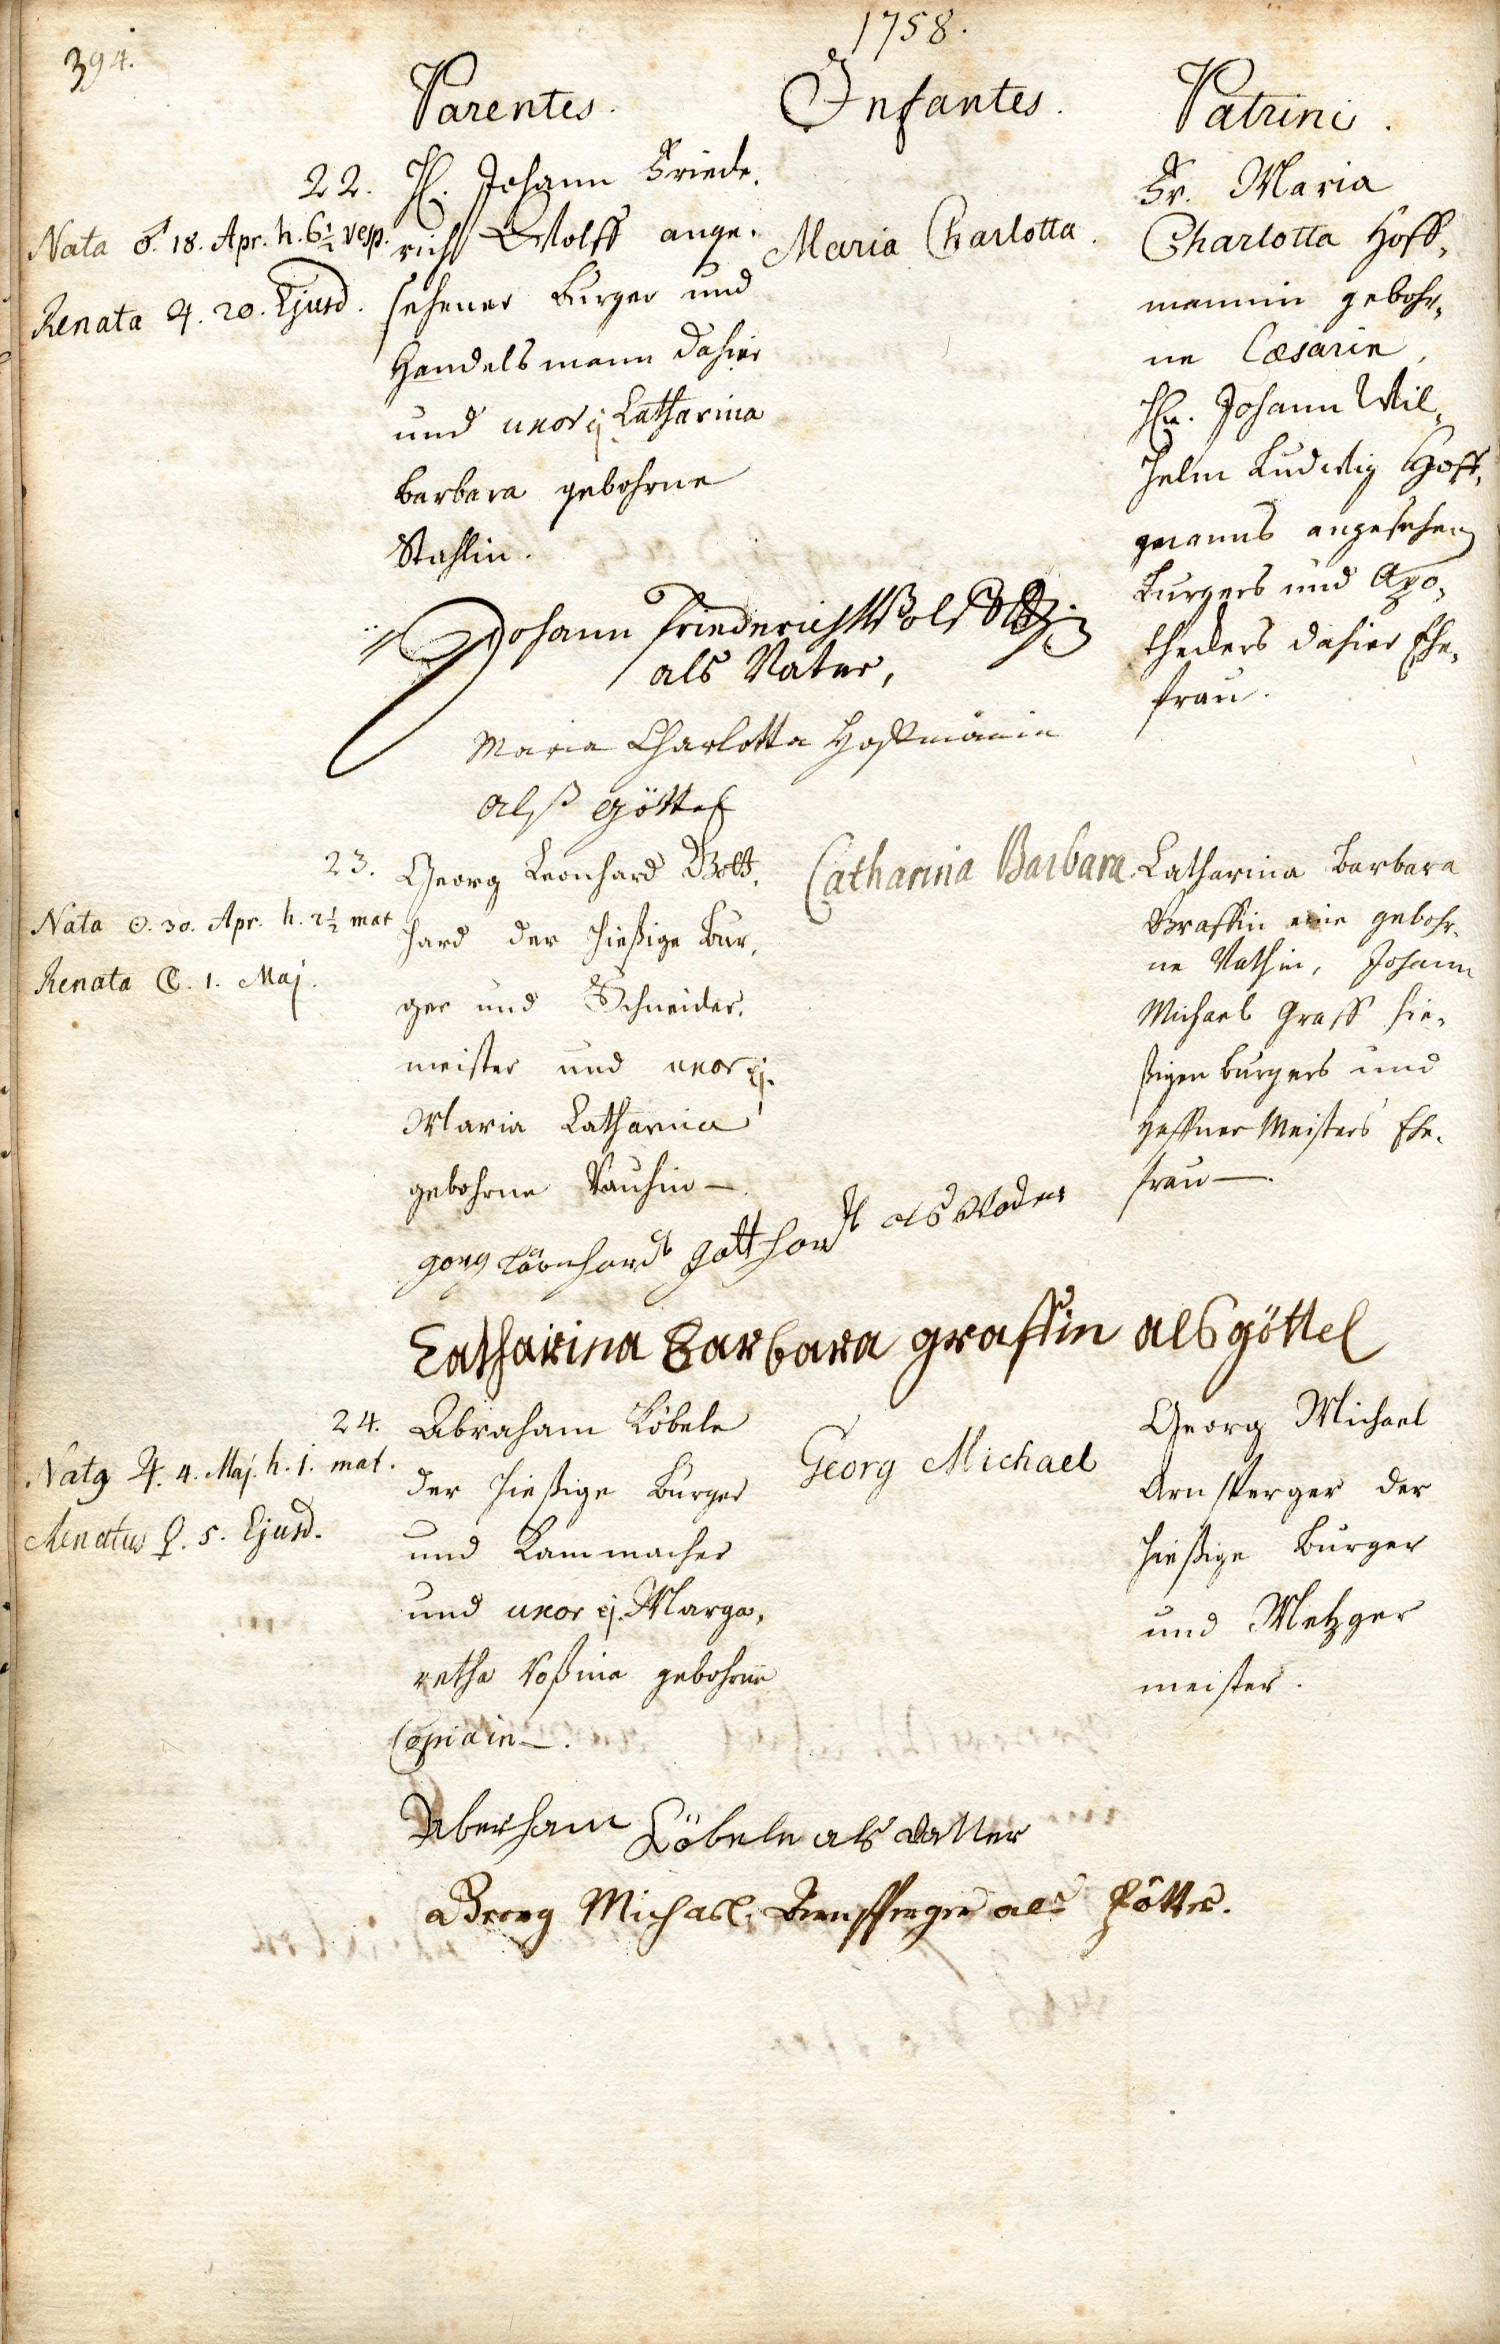 394.
1758.
Parentes.
Infantes.
Patrini.
22.
Nata ♂. 18. Apr. h. 6½ vesp.
Renata ♃. 20. Ejusd.
H. Johann Friede,
rich Wolff ange,
sehener Burger und
Handelsmann dahier
und uxor ej. Catharina
Barbara gebohrne
Stahlin.
Maria Charlotta.
Fr. Maria
Charlotta Hoff,
mannin gebohr,
ne Cæsarin,
Hn. Johann Wil,
helm Ludwig Hoff,
manns angesehen
Burgers und Apo,
theckers dahier Ehe,
frau.
Johann Friederich Wolff
als Vater,
Maria Charlotta Hoffmänin
alß göttel
23.
Nata ☉. 30. Apr. h. 2½ mat
Renata ☾. 1. Maj.
Georg Leonhard Gott,
hard der hießige Bur,
ger und Schneider,
meister und uxor ej.
Maria Catharina
gebohrne Vauhin —.
Catharina Barbara
Catharina Barbara
Graffin eine gebohr,
ne Vathin, Johann
Michael Graff hie,
ßigen Burgers und
Haffner Meisters Ehe,
frau —.
gorg Leonhardt gotthardt als Vader
Catharina Barbara graffin als göttel
24.
Natq ♃. 4. Maj. h. 1. mat.
Renatus ♀. 5. Ejusd.
Abraham Löbele
der hießige Burger
und Kammacher
und uxor ej. Marga,
retha Roßina gebohrne
Georg Michael
Georg Michael
Arnsperger der
hießige Burger
und Metzger
meister.
Aberham Löbele als Vatter
Georg Michael Arnsperger als Pötter.